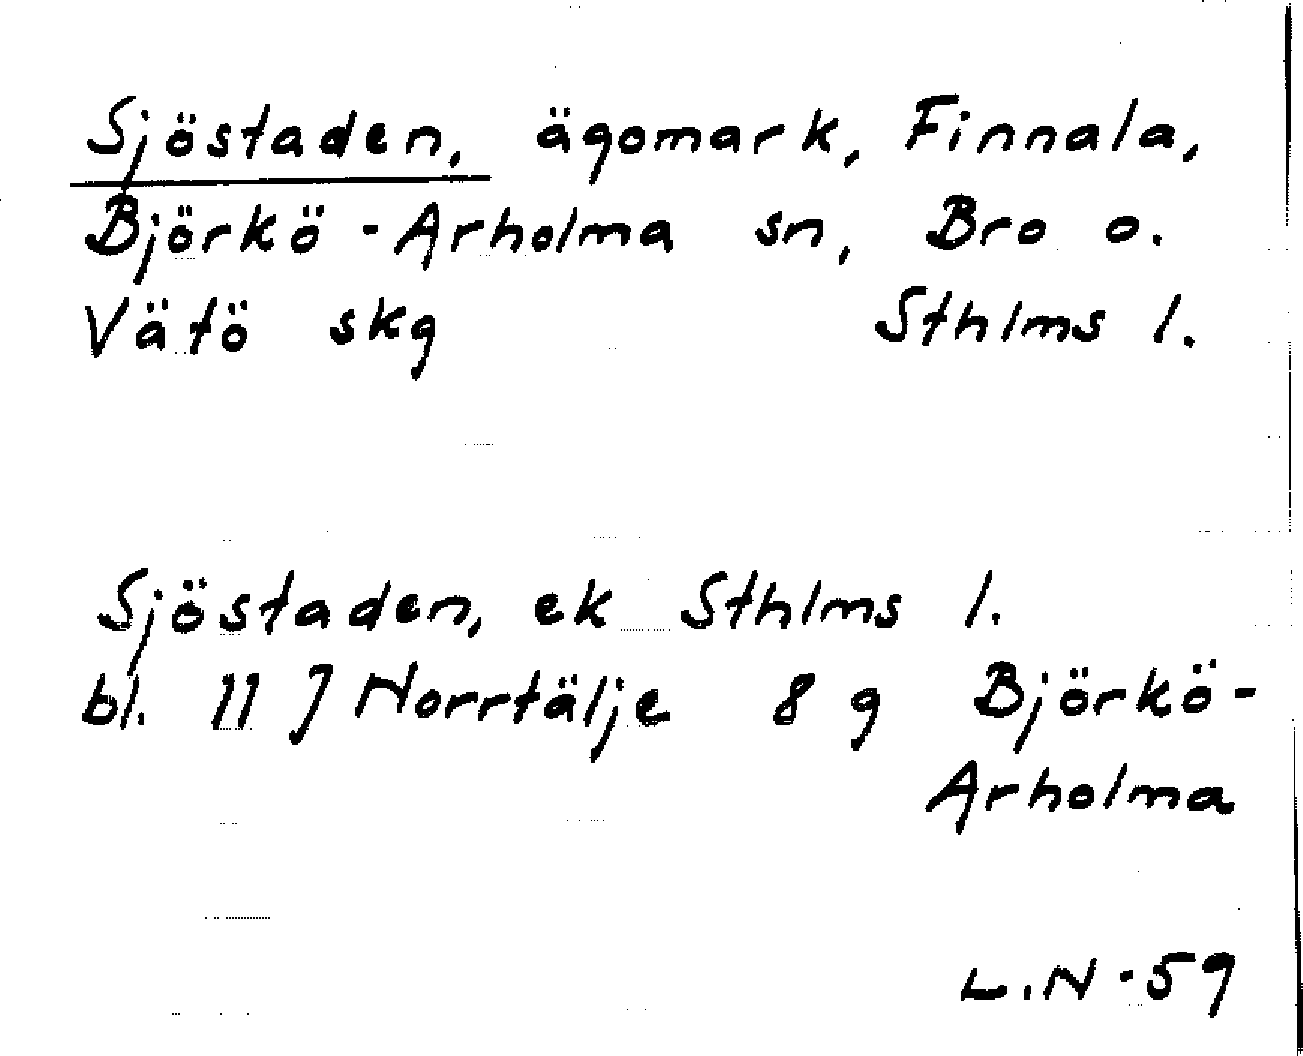 Sjöstaden, ägomark, Finnala,
Björkö-Arholma sn, Bro o.
Vätö skg Sthlms l.
Sjöstaden, ek Sthlms l.
bl. 11 J Norrtälje 8 g Björkö-
Arholma
L.N-59